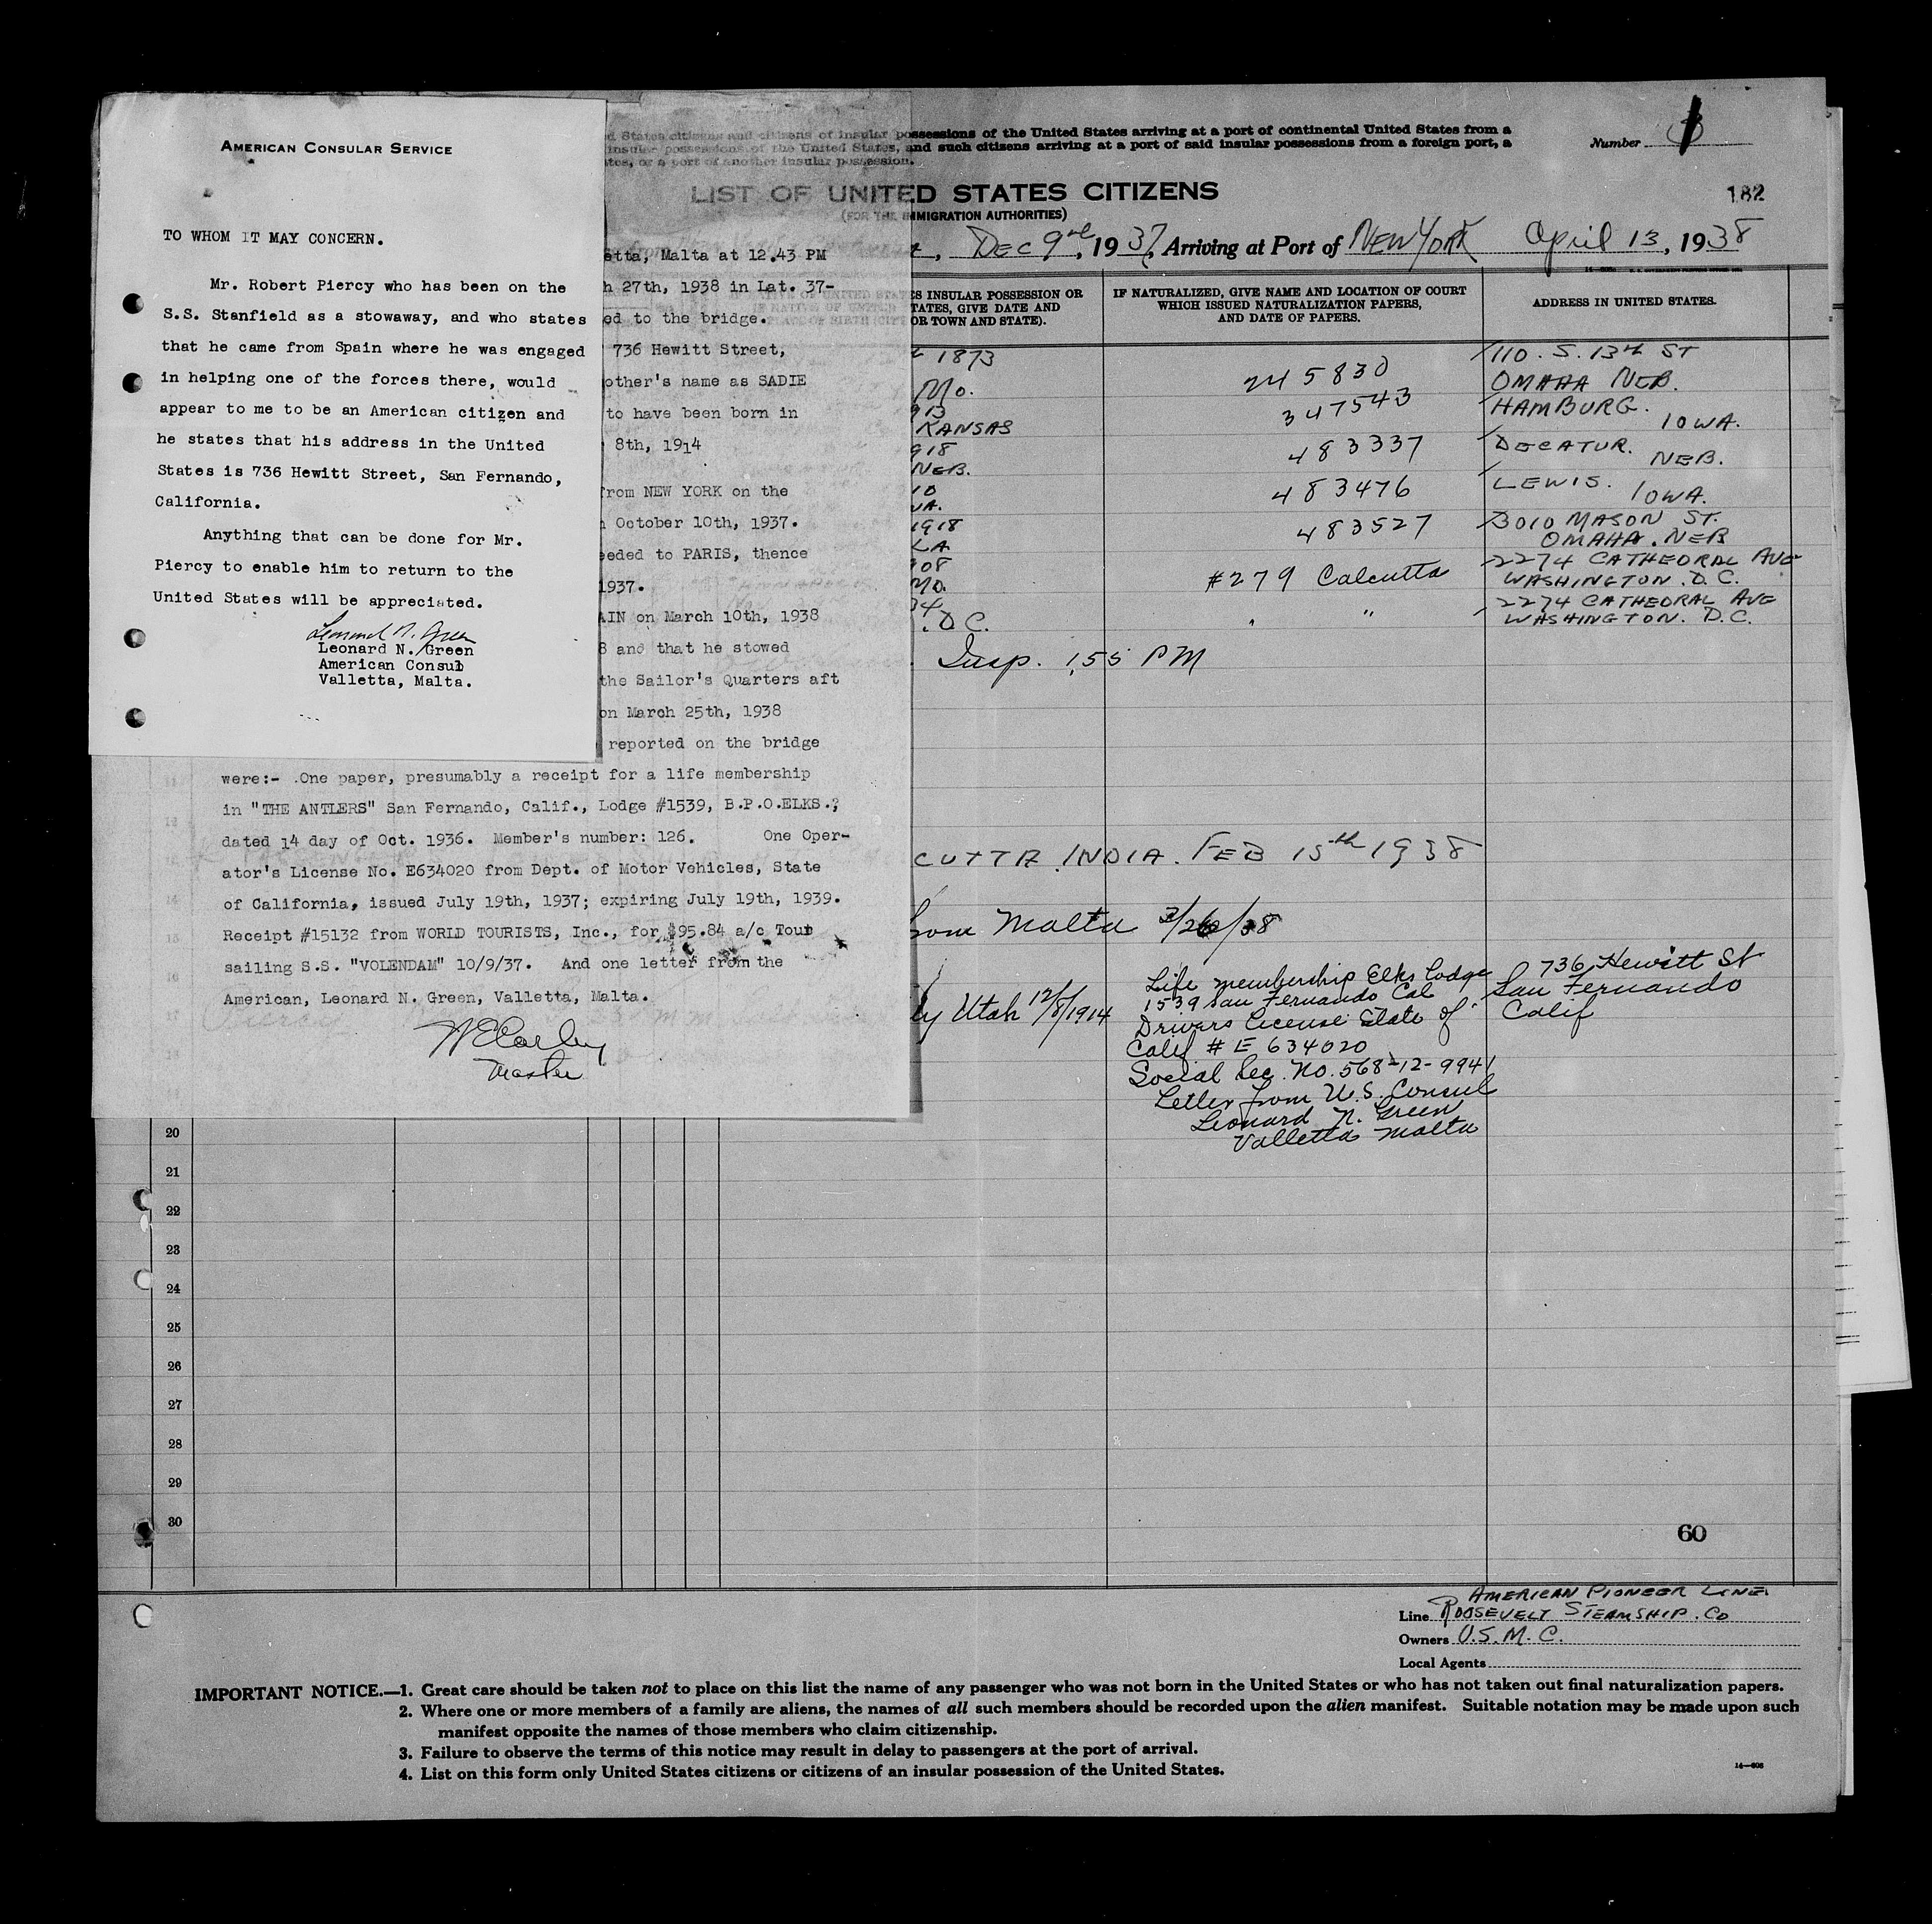 AMERICAN CONSULAR SERVICE
TO WHOM IT MAY CONCERN.
Mr. Robert Piercy who has been on the
S.S. Stanfield as a stowaway, and who states
that he came from Spain where he was engaged
in helping one of the forces there, would
appear to me to be an American citizen and
he states that his address in the United
States is 736 Hewitt Street, San Fernando,
California.
Anything that can be done for Mr.
Piercy to enable him to return to the
United States will be appreciated.
Leonard N. Green
Leonard N. Green
American Consul
Valletta, Malta.
etta, Malta at 12.43 PM
h 27th, 1938 in Lat. 37-
ed to the bridge.
736 Hewitt Street,
other's name as SADIE
to have been born in
8th, 1914
from NEW YORK on the
October 10th, 1937.
eeded to PARIS, thence
1937.
AIN on March 10th, 1938
8 and that he stowed
the Sailor's Quarters aft
on March 25th, 1938
reported on the bridge
were:- .One paper, presumably a receipt for a life membership
in "THE ANTLERS" San Fernando, Calif., Lodge #1539, B.P.O.ELKS.;
dated 14 day of Oct. 1936. Member's number: 126. One Oper-
ator's License No. E634020 from Dept. of Motor Vehicles, State
of California, issued July 19th, 1937; expiring July 19th, 1939.
Receipt #15132 from WORLD TOURISTS, Inc., for $95.84 a/c Tour
sailing S.S. "VOLENDAM" 10/9/37. And one letter from the
American, Leonard N. Green, Valletta, Malta.
Master
d States citizens and citizens of insular possessions of the United States arriving at a port of continental United States from a
insular possessions of the United States, and such citizens arriving at a port of said insular possessions from a foreign port, a
ates, or a port of another insular possession.
Number
182
LIST OF UNITED STATES CITIZENS
(FOR THE IMMIGRATION AUTHORITIES)
, Dec 9th, 1937, Arriving at Port of NEW YORK April 13, 1938
ES INSULAR POSSESSION OR
TATES, GIVE DATE AND
OR TOWN AND STATE).
IF NATURALIZED, GIVE NAME AND LOCATION OF COURT
WHICH ISSUED NATURALIZATION PAPERS,
AND DATE OF PAPERS.
ADDRESS IN UNITED STATES.
1873 245830 110. S. 13th ST
Mo. OMAHA NEB.
913 347543 HAMBURG.
KANSAS IOWA.
918 483337 DECATUR.
NEB. NEB.
10 483476 LEWIS.
WA. IOWA.
1918 483527 3010 MASON ST.
LA OMAHA. NEB
908 #279 Calcutta 2274 CATHEDRAL AVE
MO. WASHINGTON. D.C.
34 " " 2274 CATHEDRAL AVE
. D.C. WASHINGTON. D.C.
Insp. 1,55 PM
CUTTA. INDIA. FEB 15th 1938
from Malta 3/26/38
ly Utah 12/8/1914
Life membership Elks Lodge
1539 San Fernando Cal
Drivers License State of
Calif # E 634020
Social Sec. No. 568-12-9941
Letter from U.S. Consul
Leonard N. Green
Valletta Malta
736 Hewitt St
San Fernando
Calif
20
21
22
23
24
25
26
27
28
29
30
60
AMERICAN PIONEER LINE
Line ROOSEVELT STEAMSHIP. CO
Owners U.S.M.C.
Local Agents
IMPORTANT NOTICE.—1. Great care should be taken not to place on this list the name of any passenger who was not born in the United States or who has not taken out final naturalization papers.
2. Where one or more members of a family are aliens, the names of all such members should be recorded upon the alien manifest. Suitable notation may be made upon such
manifest opposite the names of those members who claim citizenship.
3. Failure to observe the terms of this notice may result in delay to passengers at the port of arrival.
4. List on this form only United States citizens or citizens of an insular possession of the United States.